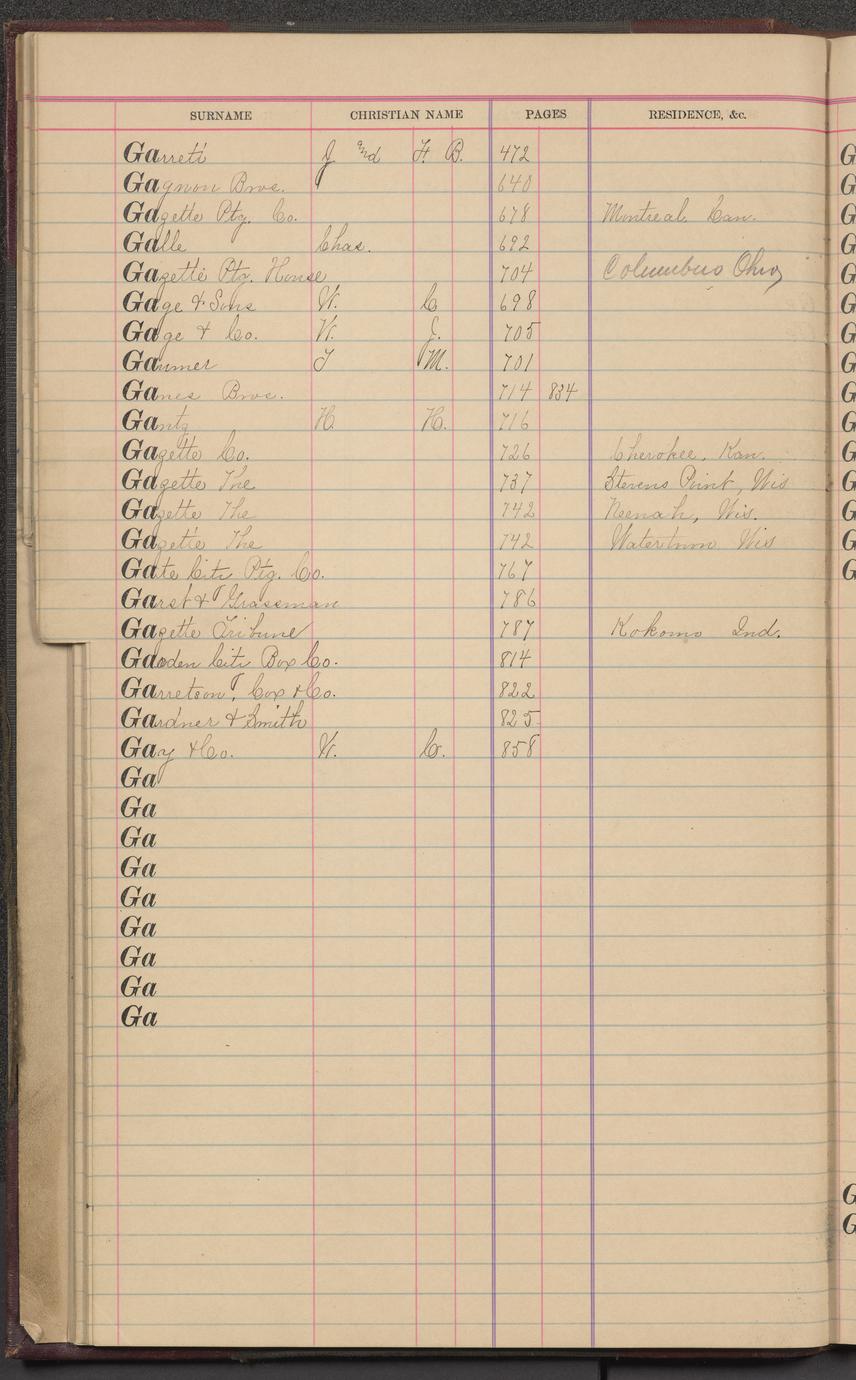 SURNAME CHRISTIAN NAME PAGES RESIDENCE, &c.
Garrett J. and F. B. 472
Gagnon Bros. 640
Gazette Ptg. Co. 678 Montreal Can.
Galle Chas. 692
Gazette Ptg. House 704 Columbus Ohio
Gage & Sons W. C 698
Gage & Co. W. J. 705
Gaumer T M. 701
Ganes Bros. 714 834
Gantz H. H. 716
Gazette Co. 726 Cherokee, Kan.
Gazette The 737 Stevens Point, Wis
Gazette The 742 Neenah, Wis.
Gazette The 742 Watertown Wis
Gate City Ptg. Co. 767
Garst & Grassman 786
Gazette Tribune 787 Kokomo Ind.
Garden City Box Co. 814
Garretson, Cox & Co. 822
Gardner & Smith 825
Gay & Co. W. C. 858
Ga
Ga
Ga
Ga
Ga
Ga
Ga
Ga
Ga